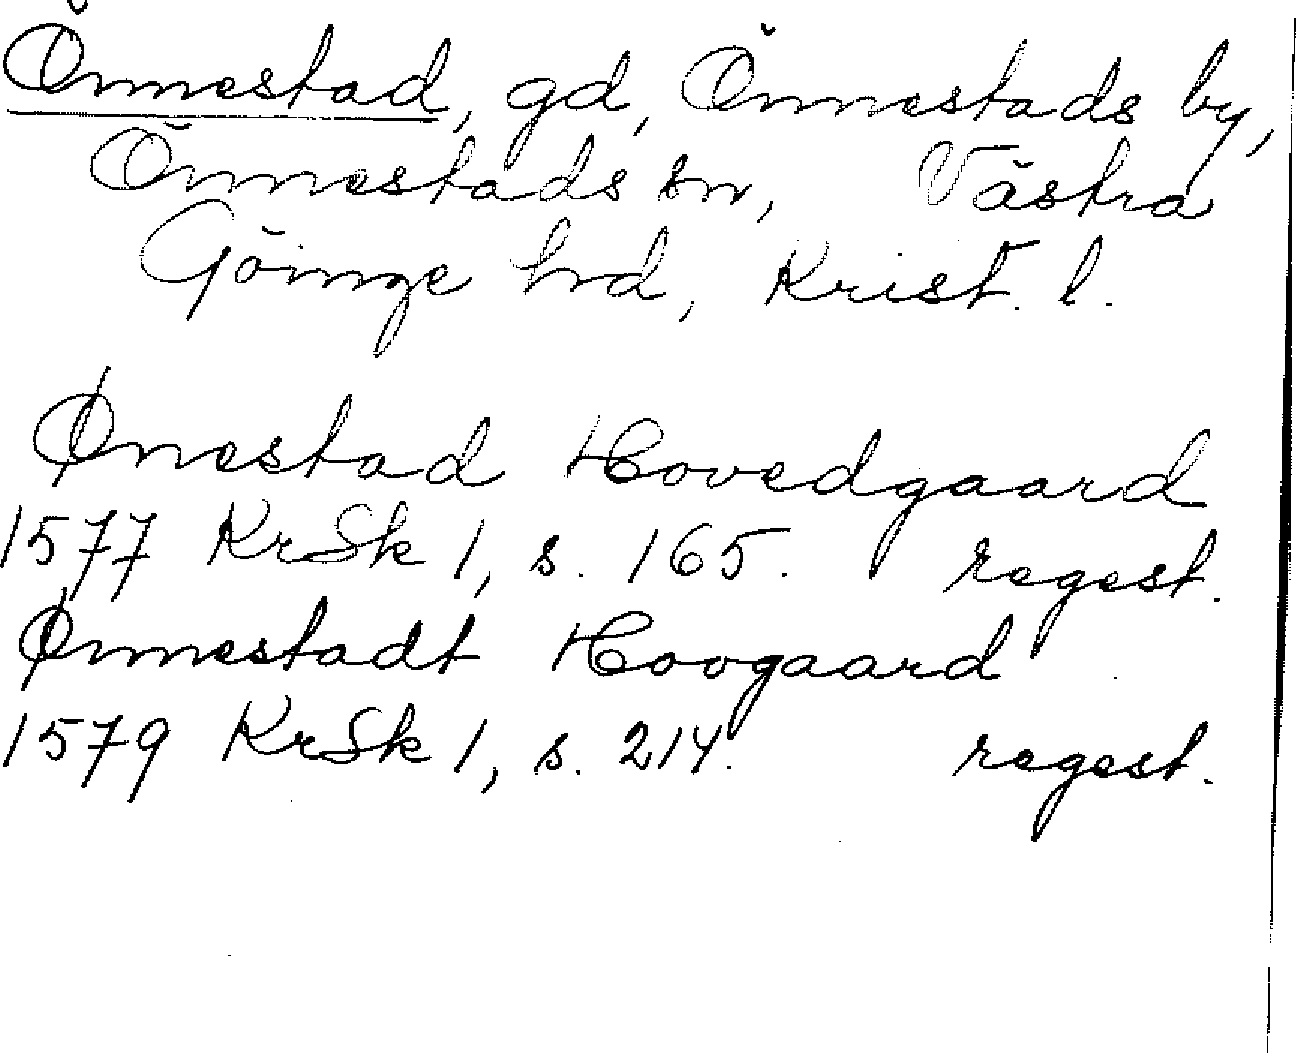 Önnestad, gd, Önnestads by,
Önnestads sn, Västra
Göinge hd, Krist. l.
Ønestad Hovedgaard
1577 KrSk 1, s. 165. regest.
Ønnestadt Hovgaard
1579 KrSk 1, s. 214. regest.